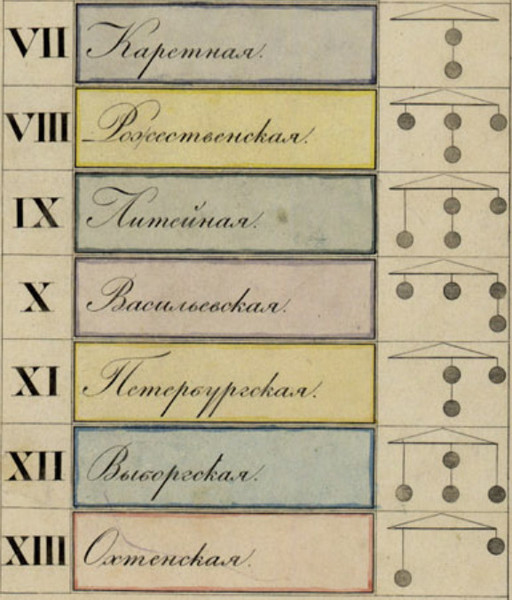 VII Каретная.
VIII Рожественская.
IX Литейная.
X Васильевская.
XI Петербургская.
XII Выборгская.
XIII Охтенская.